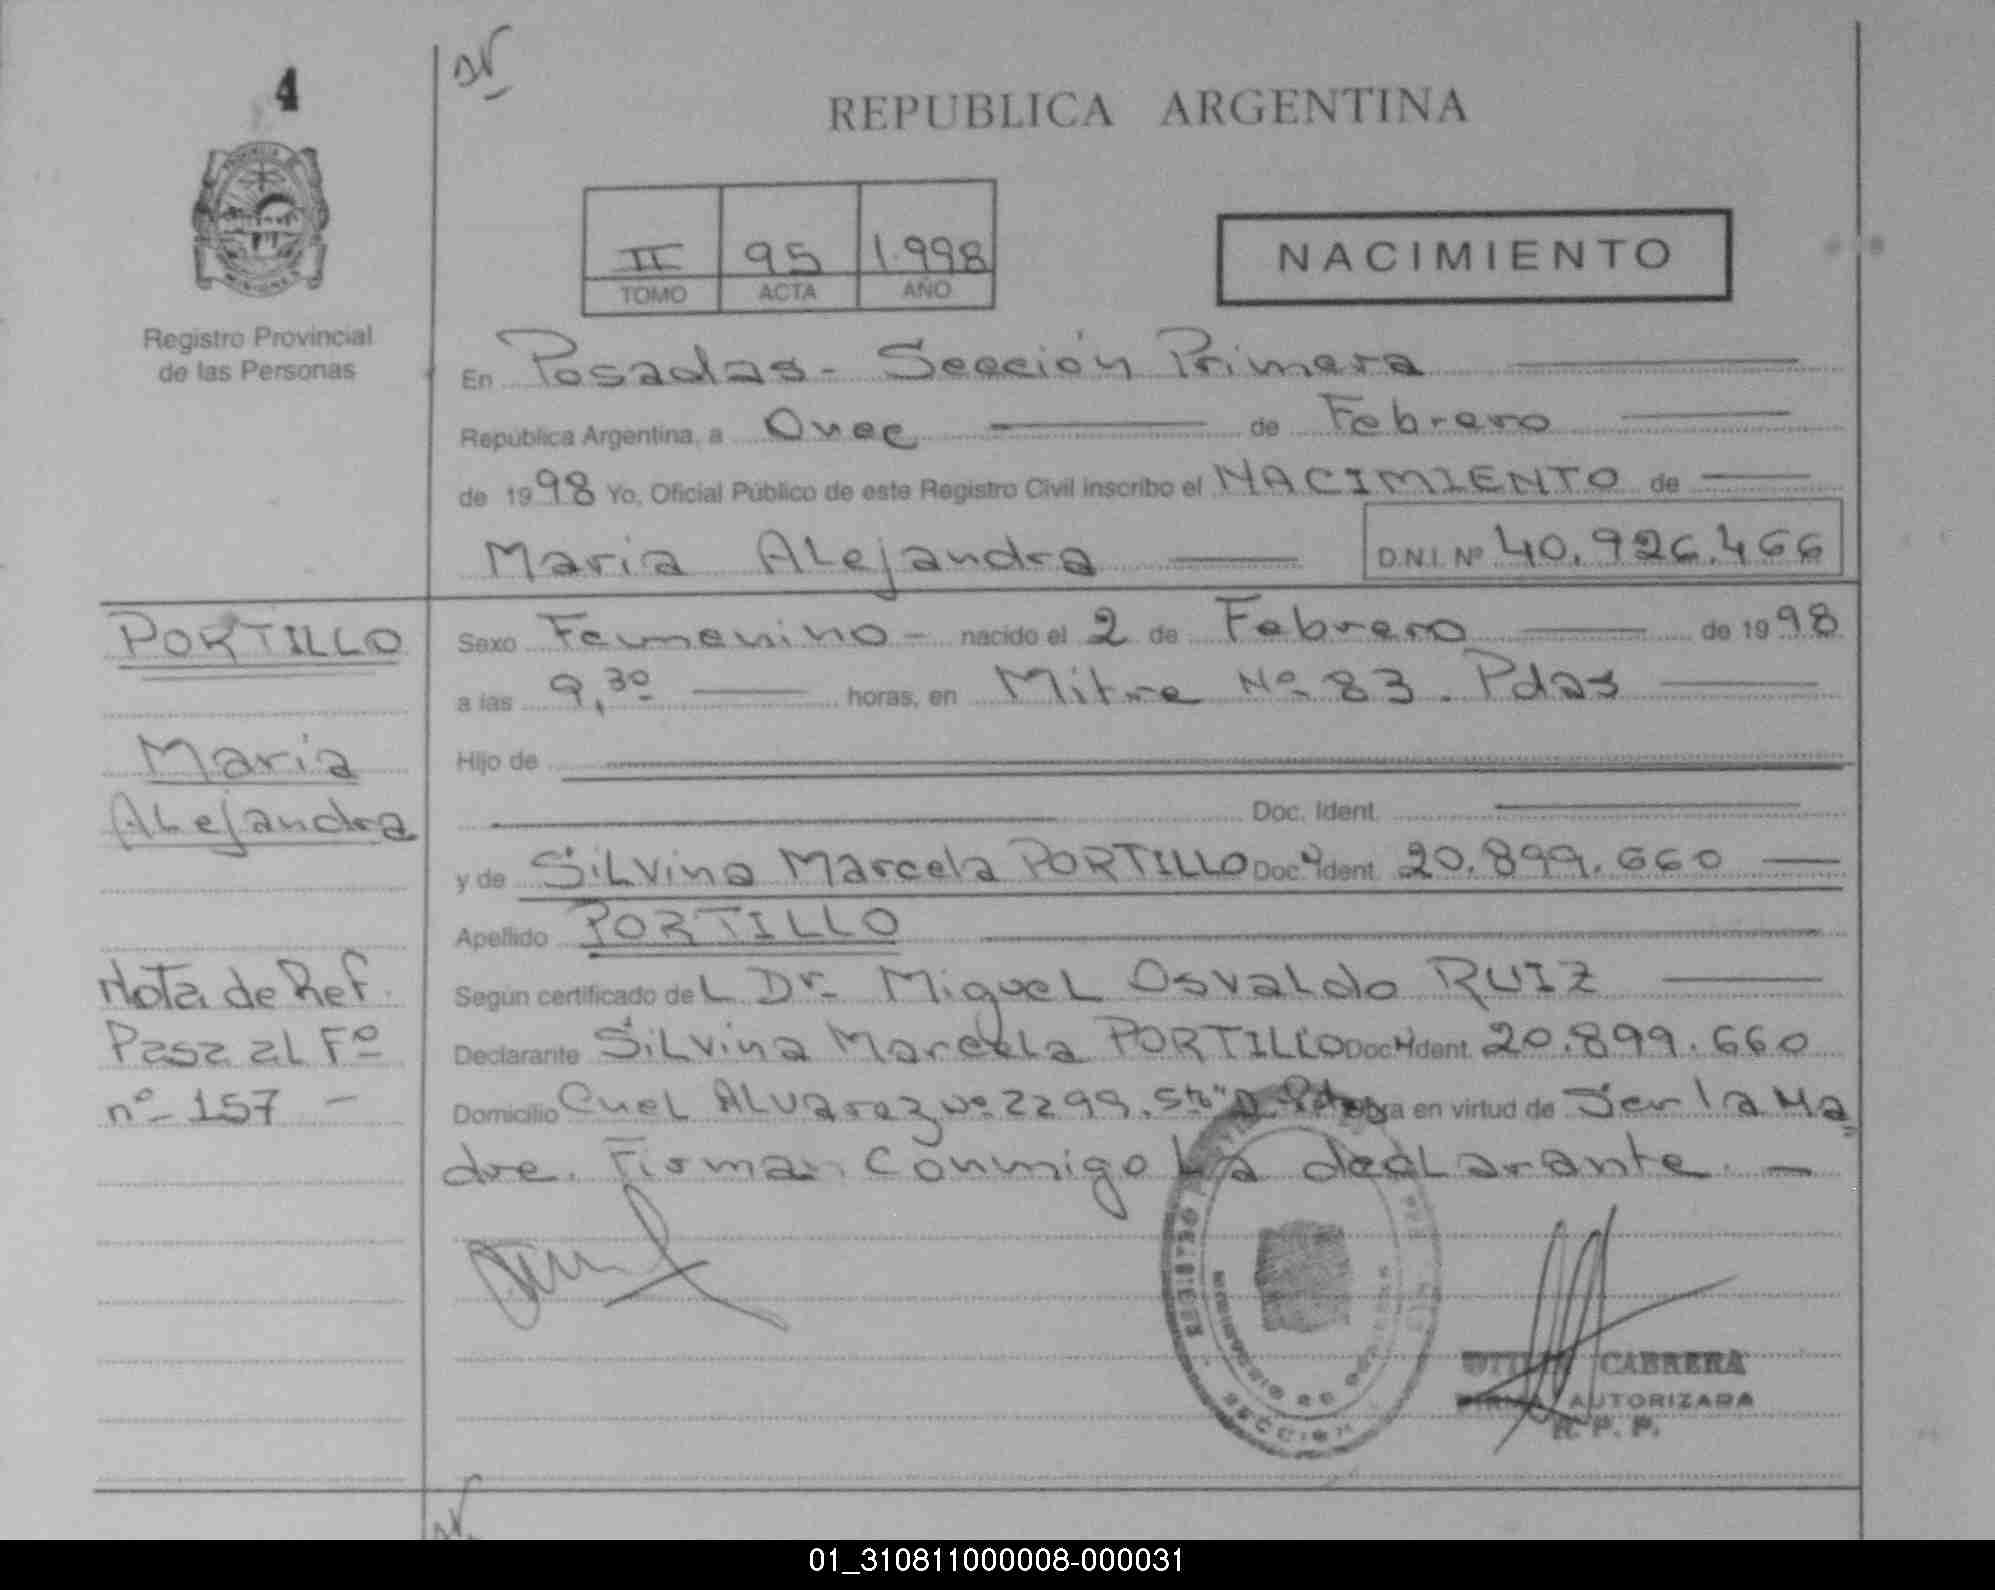 4
REPUBLICA ARGENTINA
II 95 1.998
TOMO ACTA AÑO
NACIMIENTO
Registro Provincial
de las Personas
En Posadas - Sección Primera
República Argentina, a Once de Febrero
de 1998 Yo, Oficial Público de este Registro Civil inscribo el NACIMIENTO de
Maria Alejandra D.N.I. Nº 40.926.466
PORTILLO
Maria
Alejandra
Nota de Ref.
Pasa al Fº
nº 157 -
Sexo Femenino - nacido el 2 de Febrero de 1998
a las 9,30 horas, en Mitre Nº 83. Pdas
Hijo de
Doc. Ident.
y de Silvina Marcela PORTILLO Doc. Ident. 20.899.660
Apellido PORTILLO
Según certificado del Dr. Miguel Osvaldo RUIZ
Declarante Silvina Marcela PORTILLO Doc. Ident. 20.899.660
Domicilio Cnel Alvarez nº 2299. obra en virtud de Ser la Ma
dre. Firman Conmigo La declarante. -
CABRERA
FIRMA AUTORIZADA
R. P. P.
SECCION
01_310811000008-000031